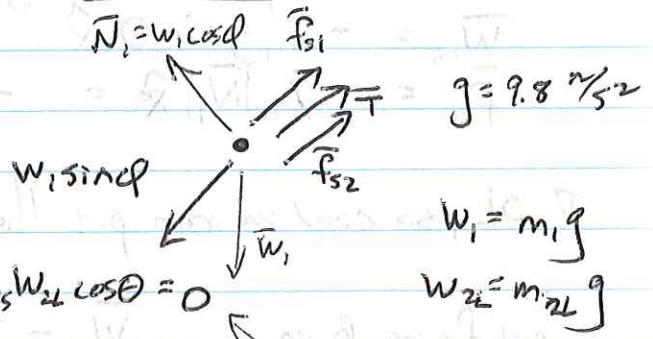 N̄₁=W₁cosφ  f̄s1
T̄  g=9.8 m/s²
W₁sinφ  f̄s2
W̄₁  W₁=m₁g
s W₂L cosθ=0  W₂L=m₂L g